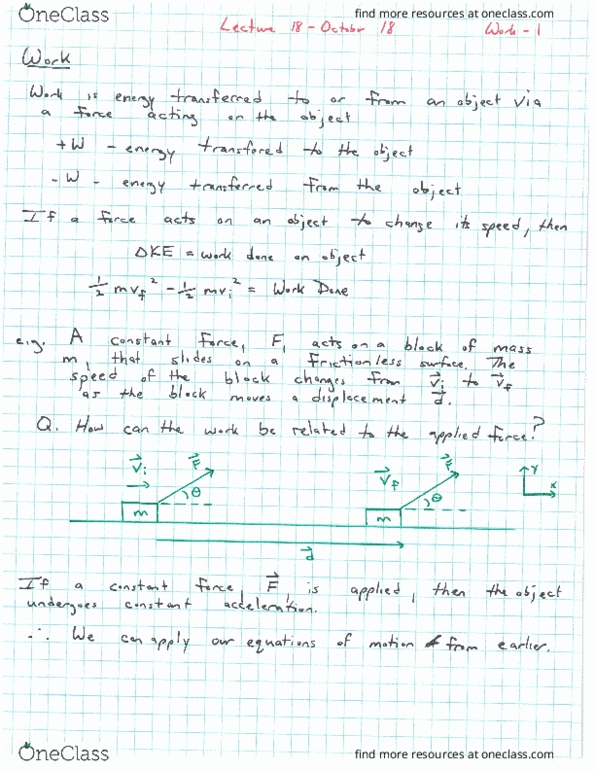 OneClass
find more resources at oneclass.com
Lecture 18 - October 18
Work - 1
Work
Work is energy transferred to or from an object via
a force acting on the object
+W - energy transfored to the object
-W - energy transferred from the object
If a force acts on an object to change its speed, then
ΔKE = work done on object
½ mv_f² - ½ mv_i² = Work Done
e.g. A constant force, F, acts on a block of mass
m, that slides on a frictionless surface. The
speed of the block changes from v⃗_i to v⃗_f
as the block moves a displacement d⃗.
Q. How can the work be related to the applied force?
v⃗_i F⃗ v⃗_f F⃗ y
θ θ x
m m
d⃗
If a constant force, F⃗, is applied, then the object
undergoes constant acceleration.
∴ We can apply our equations of motion from earlier.
OneClass
find more resources at oneclass.com